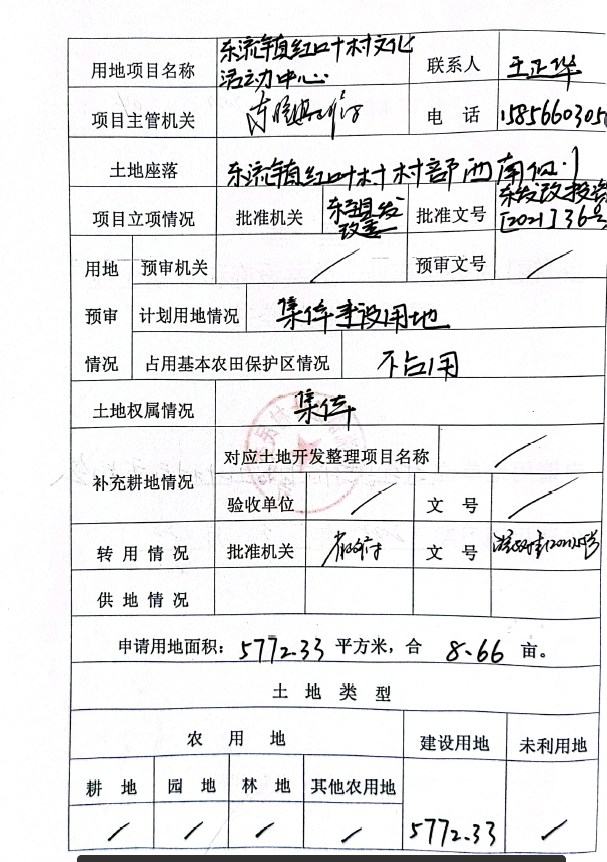 用地项目名称 东流镇红叶村文化活动中心 联系人 王正华
项目主管机关 电 话 1585660305
土地座落 东流镇红叶村村部西南侧
项目立项情况 批准机关 东至县发改委 批准文号 东发改投资[2021]36号
用地预审情况 预审机关 / 预审文号 /
计划用地情况 集体建设用地
占用基本农田保护区情况 不占用
土地权属情况 集体
补充耕地情况 对应土地开发整理项目名称 /
验收单位 / 文 号 /
转用情况 批准机关 省政府 文 号
供地情况
申请用地面积：5772.33 平方米，合 8.66 亩。
土 地 类 型
农 用 地 建设用地 未利用地
耕 地 园 地 林 地 其他农用地
/ / / / 5772.33 /